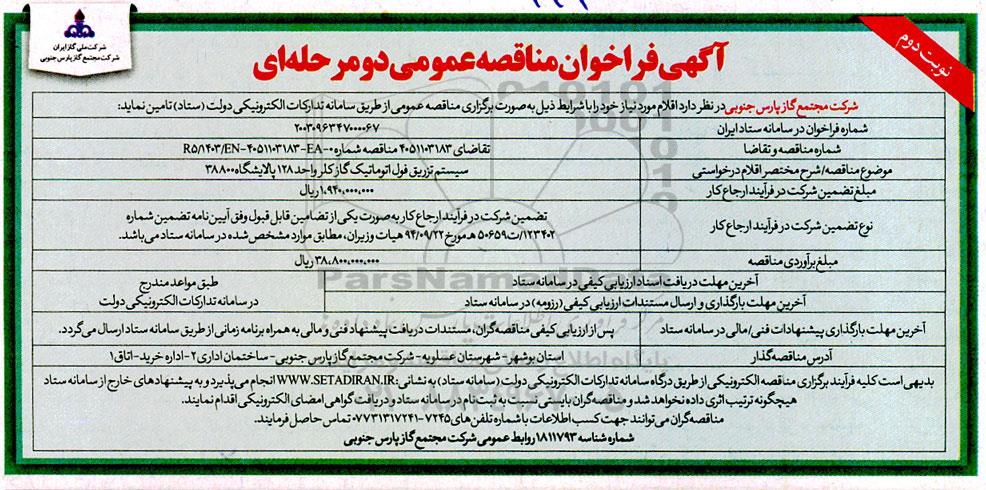 شرکت ملی گاز ایران
شرکت مجتمع گاز پارس جنوبی
نوبت دوم
آگهی فراخوان مناقصه عمومی دو مرحله‌ای
شرکت مجتمع گاز پارس جنوبی در نظر دارد اقلام مورد نیاز خود را با شرایط ذیل به صورت برگزاری مناقصه عمومی از طریق سامانه تدارکات الکترونیکی دولت (ستاد) تامین نماید:
شماره فراخوان در سامانه ستاد ایران ۲۰۰۳۰۹۶۳۴۷۰۰۰۰۶۷
شماره مناقصه و تقاضا تقاضای ۴۰۵۱۱۰۳۱۸۳ مناقصه شماره R5/1403/EN-4051103183-EA-0
موضوع مناقصه/شرح مختصر اقلام درخواستی سیستم تزریق فول اتوماتیک گاز کلر واحد ۱۲۸ پالایشگاه
مبلغ تضمین شرکت در فرآیند ارجاع کار ۱،۹۴۰،۰۰۰،۰۰۰ ریال
نوع تضمین شرکت در فرآیند ارجاع کار تضمین شرکت در فرآیند ارجاع کار به صورت یکی از تضامین قابل قبول وفق آیین نامه تضمین شماره
۱۲۳۴۰۲/ت۵۰۶۵۹ هـ مورخ ۹۴/۰۹/۲۲ هیات وزیران، مطابق موارد مشخص شده در سامانه ستاد می‌باشد.
مبلغ برآوردی مناقصه ۳۸،۸۰۰،۰۰۰،۰۰۰ ریال
آخرین مهلت دریافت اسناد ارزیابی کیفی در سامانه ستاد طبق مواعد مندرج
آخرین مهلت بارگذاری و ارسال مستندات ارزیابی کیفی (رزومه) در سامانه ستاد در سامانه تدارکات الکترونیکی دولت
آخرین مهلت بارگذاری پیشنهادات فنی/مالی در سامانه ستاد پس از ارزیابی کیفی مناقصه‌گران، مستندات دریافت پیشنهاد فنی و مالی به همراه برنامه زمانی از طریق سامانه ستاد ارسال می‌گردد.
آدرس مناقصه‌گذار استان بوشهر- شهرستان عسلویه- شرکت مجتمع گاز پارس جنوبی- ساختمان اداری ۲- اداره خرید- اتاق ۱
بدیهی است کلیه فرآیند برگزاری مناقصه الکترونیکی از طریق درگاه سامانه تدارکات الکترونیکی دولت (سامانه ستاد) به نشانی: WWW.SETADIRAN.IR انجام می‌پذیرد و به پیشنهادهای خارج از سامانه ستاد
هیچگونه ترتیب اثری داده نخواهد شد و مناقصه‌گران بایستی نسبت به ثبت نام در سامانه ستاد و دریافت گواهی امضای الکترونیکی اقدام نمایند.
مناقصه‌گران می‌توانند جهت کسب اطلاعات با شماره تلفن‌های ۷۲۴۵-۰۷۷۳۱۳۱۷۲۴۱ تماس حاصل فرمایند.
شماره شناسه ۱۸۱۱۷۹۳ روابط عمومی شرکت مجتمع گاز پارس جنوبی
ParsNamadData